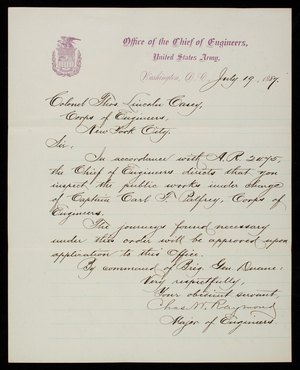 Office of the Chief of Engineers,
United States Army,
Washington, D. C. July 19, 1887.
Colonel Thos Lincoln Casey,
Corps of Engineers,
New York City.
Sir:
In accordance with A.R. 2475,
the Chief of Engineers directs that you
inspect the public works under charge
of Captain Carl F. Palfrey, Corps of
Engineers.
The journeys found necessary
under this order will be approved upon
application to this Office.
By command of Brig. Gen. Duane:
Very respectfully,
Your obedient servant,
Chas. W. Raymond
Major of Engineers.